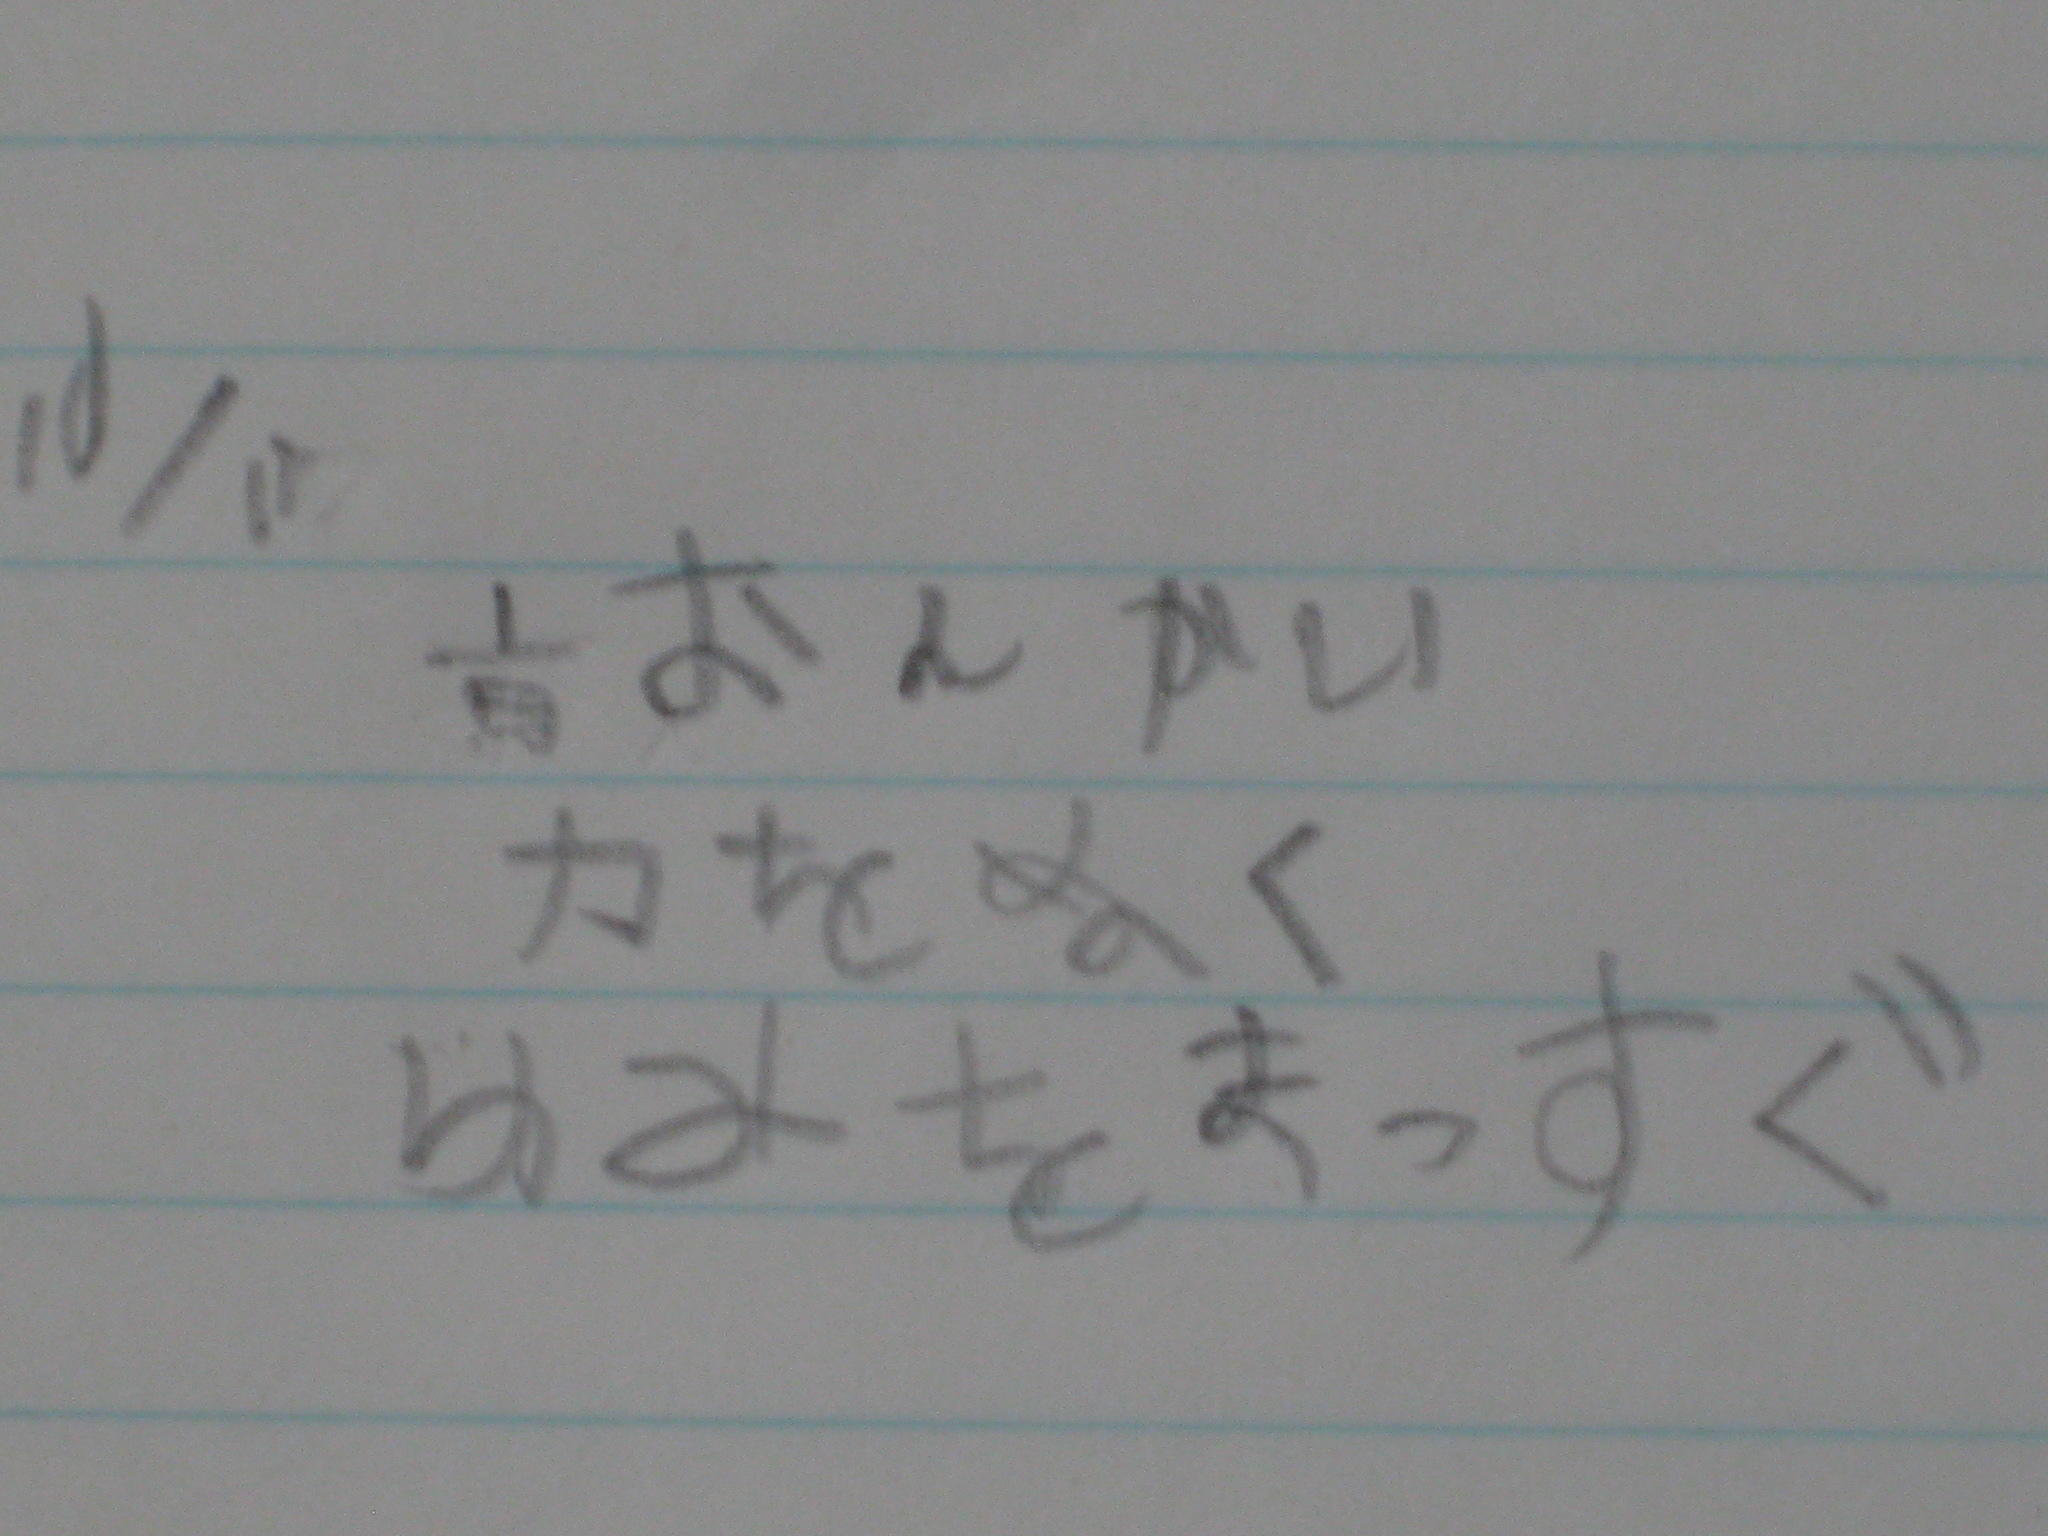 10/15
おんかい
力をぬく
ゆみをまっすぐ